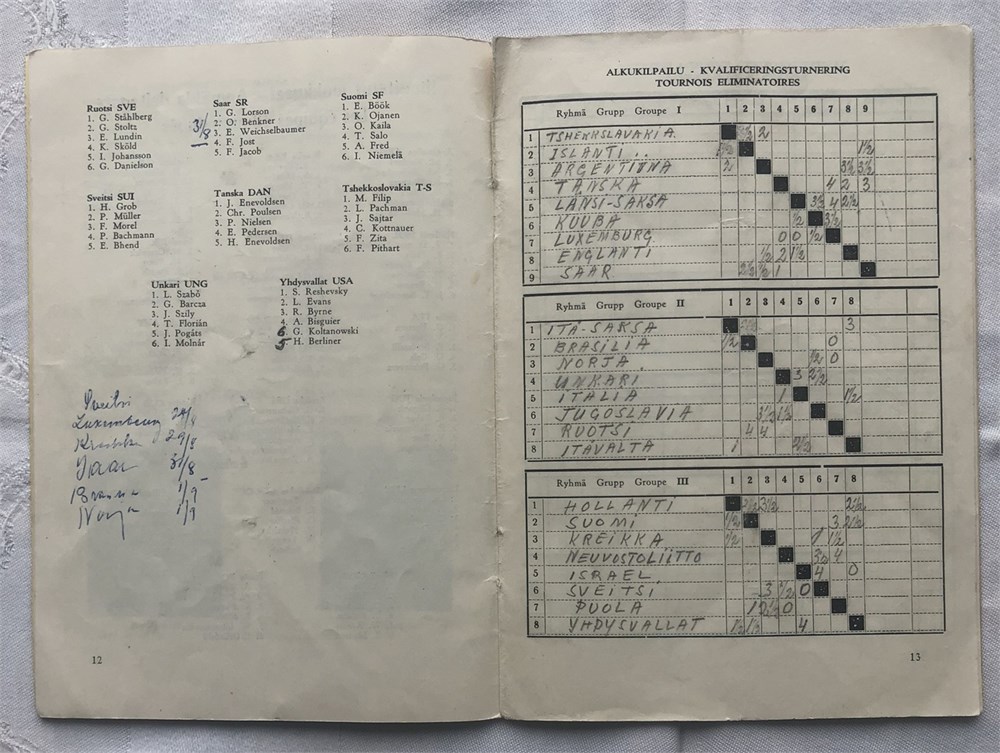 Ruotsi SVE
1. G. Ståhlberg
2. G. Stoltz
3. E. Lundin
4. K. Sköld
5. I. Johansson
6. G. Danielson
31/8
Saar SR
1. G. Lorson
2. O. Benkner
3. E. Weichselbaumer
4. F. Jost
5. F. Jacob
Suomi SF
1. E. Böök
2. K. Ojanen
3. O. Kaila
4. T. Salo
5. A. Fred
6. I. Niemelä
Sveitsi SUI
1. H. Grob
2. P. Müller
3. F. Morel
4. P. Bachmann
5. E. Bhend
Tanska DAN
1. J. Enevoldsen
2. Chr. Poulsen
3. P. Nielsen
4. E. Pedersen
5. H. Enevoldsen
Tshekkoslovakia T-S
1. M. Filip
2. L. Pachman
3. J. Sajtar
4. C. Kottnauer
5. F. Zita
6. F. Pithart
Unkari UNG
1. L. Szabó
2. G. Barcza
3. J. Szily
4. T. Florián
5. J. Pogáts
6. I. Molnár
Yhdysvallat USA
1. S. Reshevsky
2. L. Evans
3. R. Byrne
4. A. Bisguier
6. G. Koltanowski
5 H. Berliner
Sveitsi
Luxemburg
29/8
Saar 31/8
1/9
Norja 1/9
12
ALKUKILPAILU - KVALIFICERINGSTURNERING
TOURNOIS ELIMINATOIRES
Ryhmä Grupp Groupe I 1 2 3 4 5 6 7 8 9
1 TSHEKKSLAVAKIA 2
2 ISLANTI 1½
3 ARGENTIINA 2 3½ 3½
4 TANSKA 4 2 3
5 LÄNSI-SAKSA 3½ 4 2½
6 KUUBA ½ 3½
7 LUXEMBURG 0 0 ½
8 ENGLANTI ½ 2 1½
9 SAAR 2½ ½ 1
Ryhmä Grupp Groupe II 1 2 3 4 5 6 7 8
1 ITÄ-SAKSA 3
2 BRASILIA 1½ 0
3 NORJA ½ 0
4 UNKARI 3 2½
5 ITALIA 1 1½
6 JUGOSLAVIA 3½ 1½
7 RUOTSI 4 4
8 ITÄVALTA 1 2½
Ryhmä Grupp Groupe III 1 2 3 4 5 6 7 8
1 HOLLANTI 2½ 3½ 2½
2 SUOMI 1½ 3 2½
3 KREIKKA ½ 1 1½
4 NEUVOSTOLIITTO 3½ 4
5 ISRAEL 4 0
6 SVEITSI 3 ½ 0
7 PUOLA 1 2½ 0
8 YHDYSVALLAT 1½ 1½ 4
13